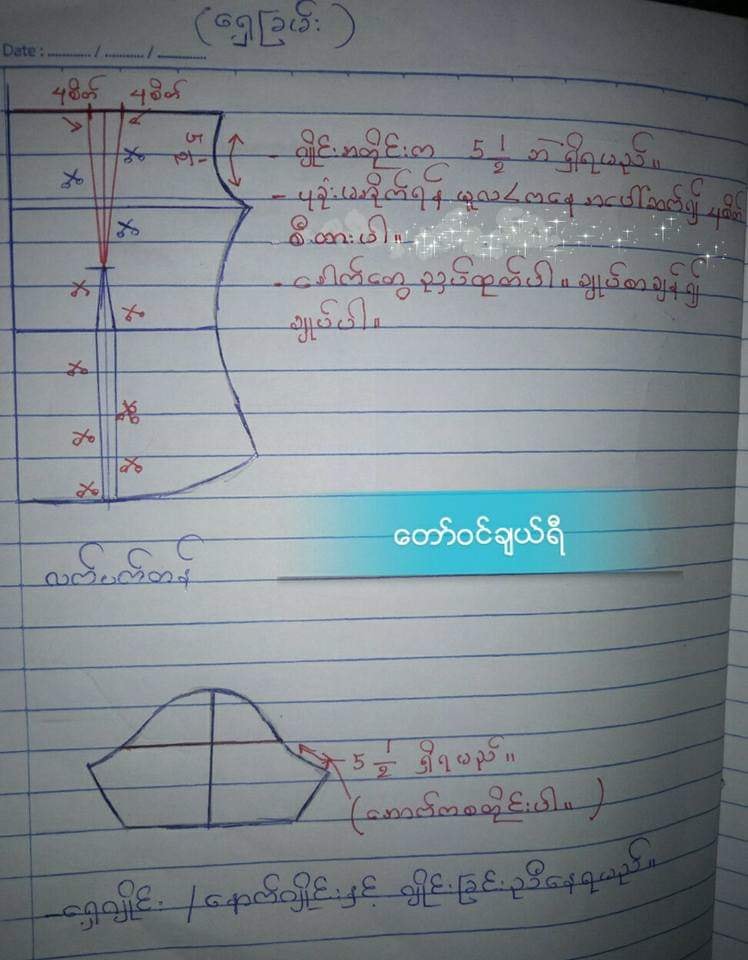 (ရှေ့ခြမ်း)
Date : ........... / ........... / ...........
၄စိတ် ၄စိတ်
5 1/2
- ချိုင်းအတိုင်းက 5 1/2 ဘဲ ရှိရမည်။
- ပုခုံးမအိုက်ရန် မူလ ကနေ အပေါ်ဆက်၍ ၄စိတ်
စီထားပါ။
- ခေါက်တွေ ညှပ်ထုတ်ပါ။ ချုပ်စာချန်၍
ချုပ်ပါ။
တော်ဝင်ချယ်ရီ
လက်ပက်တန်
5 1/2 ရှိရမည်။
(အောက်ကစတိုင်းပါ။)
- ရှေ့ချိုင်း / နောက်ချိုင်းနှင့် ချိုင်းခြင်းညီနေရမည်။